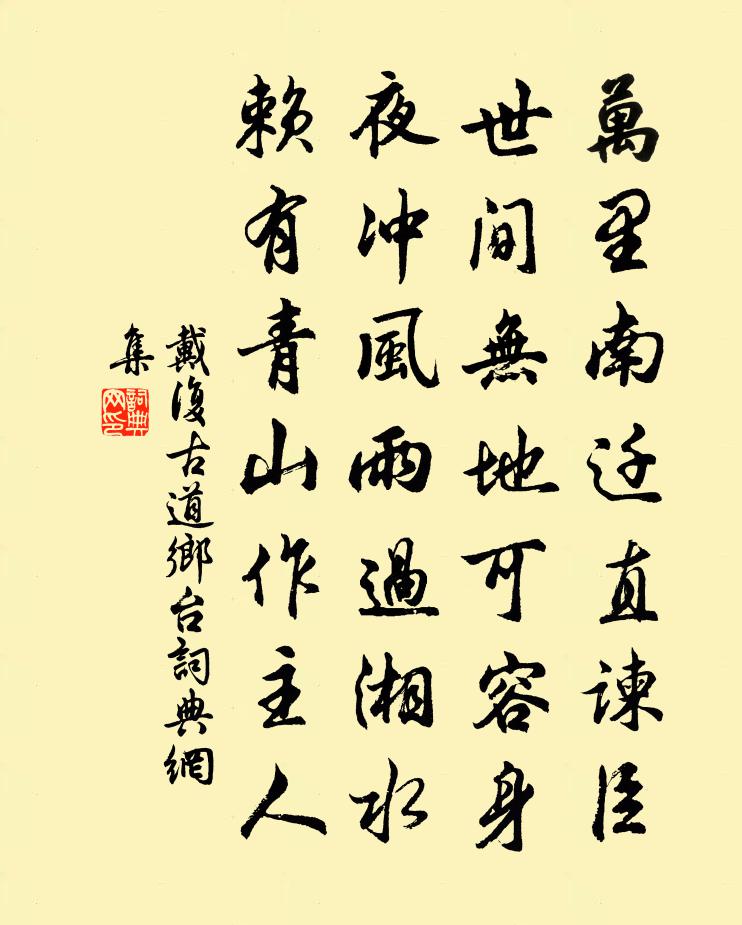 萬里南迁直諫臣
世間無地可容身
夜冲風雨過湘水
賴有青山作主人
戴復古道鄉台詞典網
集
詞典
网印